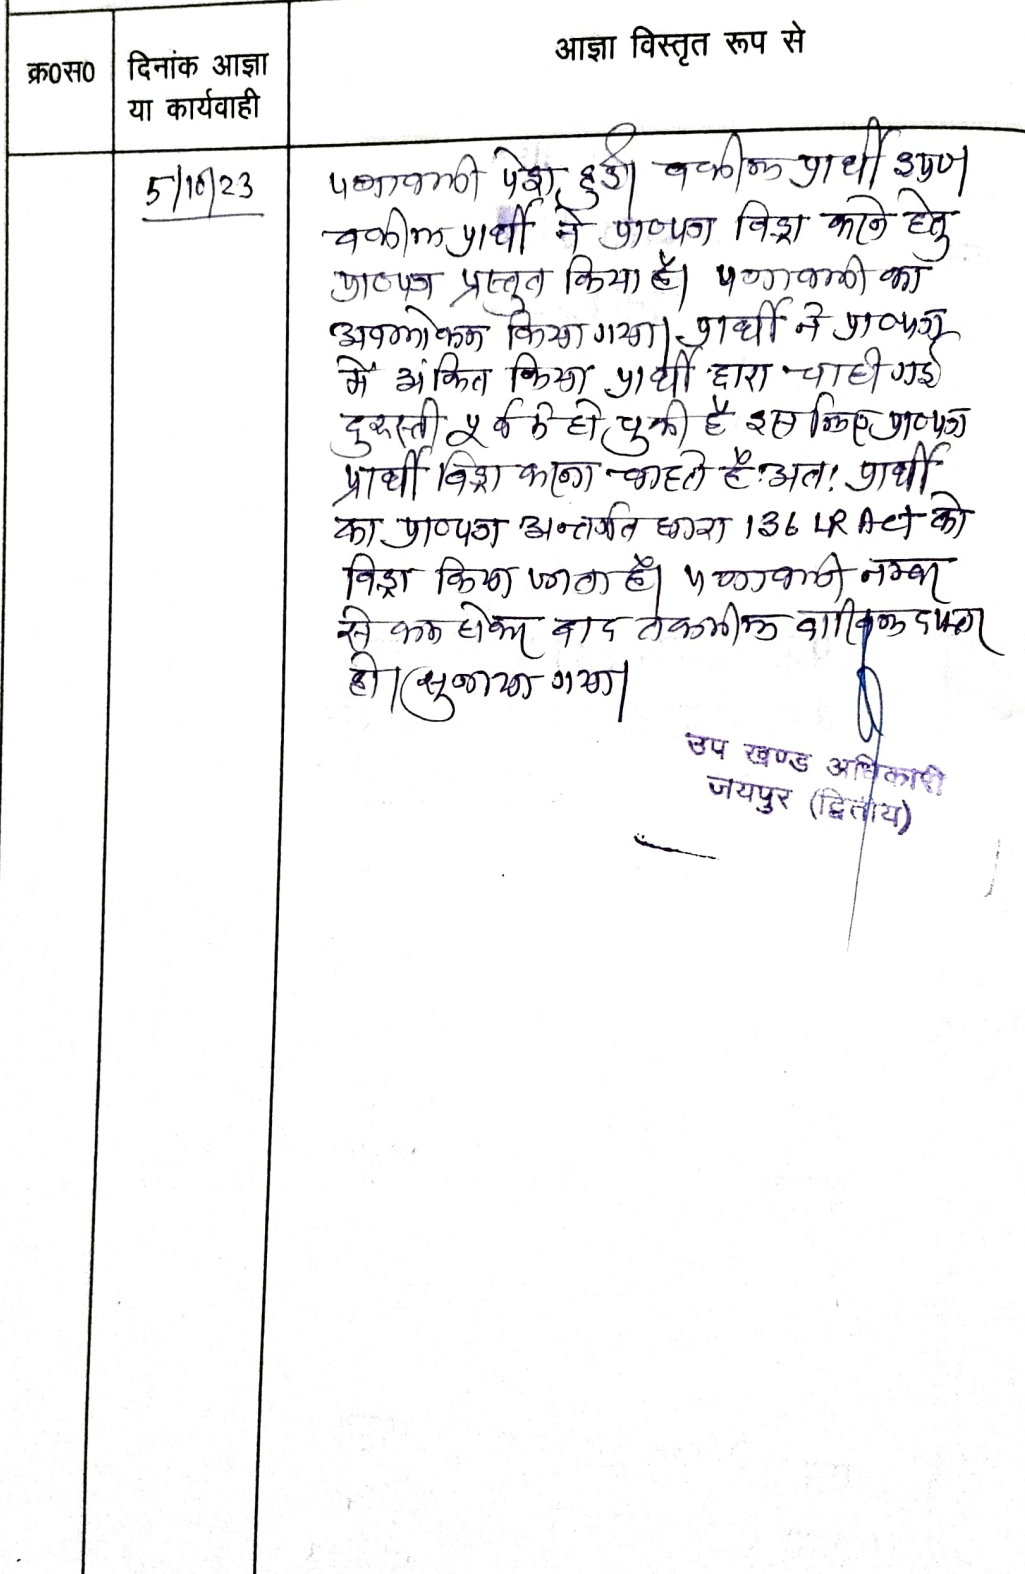 क्र०स०
दिनांक आज्ञा
या कार्यवाही
आज्ञा विस्तृत रूप से
5/10/23
पत्रावली पेश हुई। वकील प्रार्थी उप०।
वकील प्रार्थी ने प्रा०पत्र विड्रा करने हेतु
प्रा०पत्र प्रस्तुत किया है। पत्रावली का
अवलोकन किया गया। प्रार्थी ने प्रा०पत्र
में अंकित किया प्रार्थी द्वारा चाही गई
दुरुस्ती पूर्व में हो चुकी है इस लिए प्रा०पत्र
प्रार्थी विड्रा करना चाहते है। अतः प्रार्थी
का प्रा०पत्र अन्तर्गत धारा 136 LR Act को
विड्रा किया जाता है। पत्रावली नम्बर
से कम होकर बाद तकमील दाखिल दफ्तर
हो। सुनाया गया।
उप खण्ड अधिकारी
जयपुर (द्वितीय)